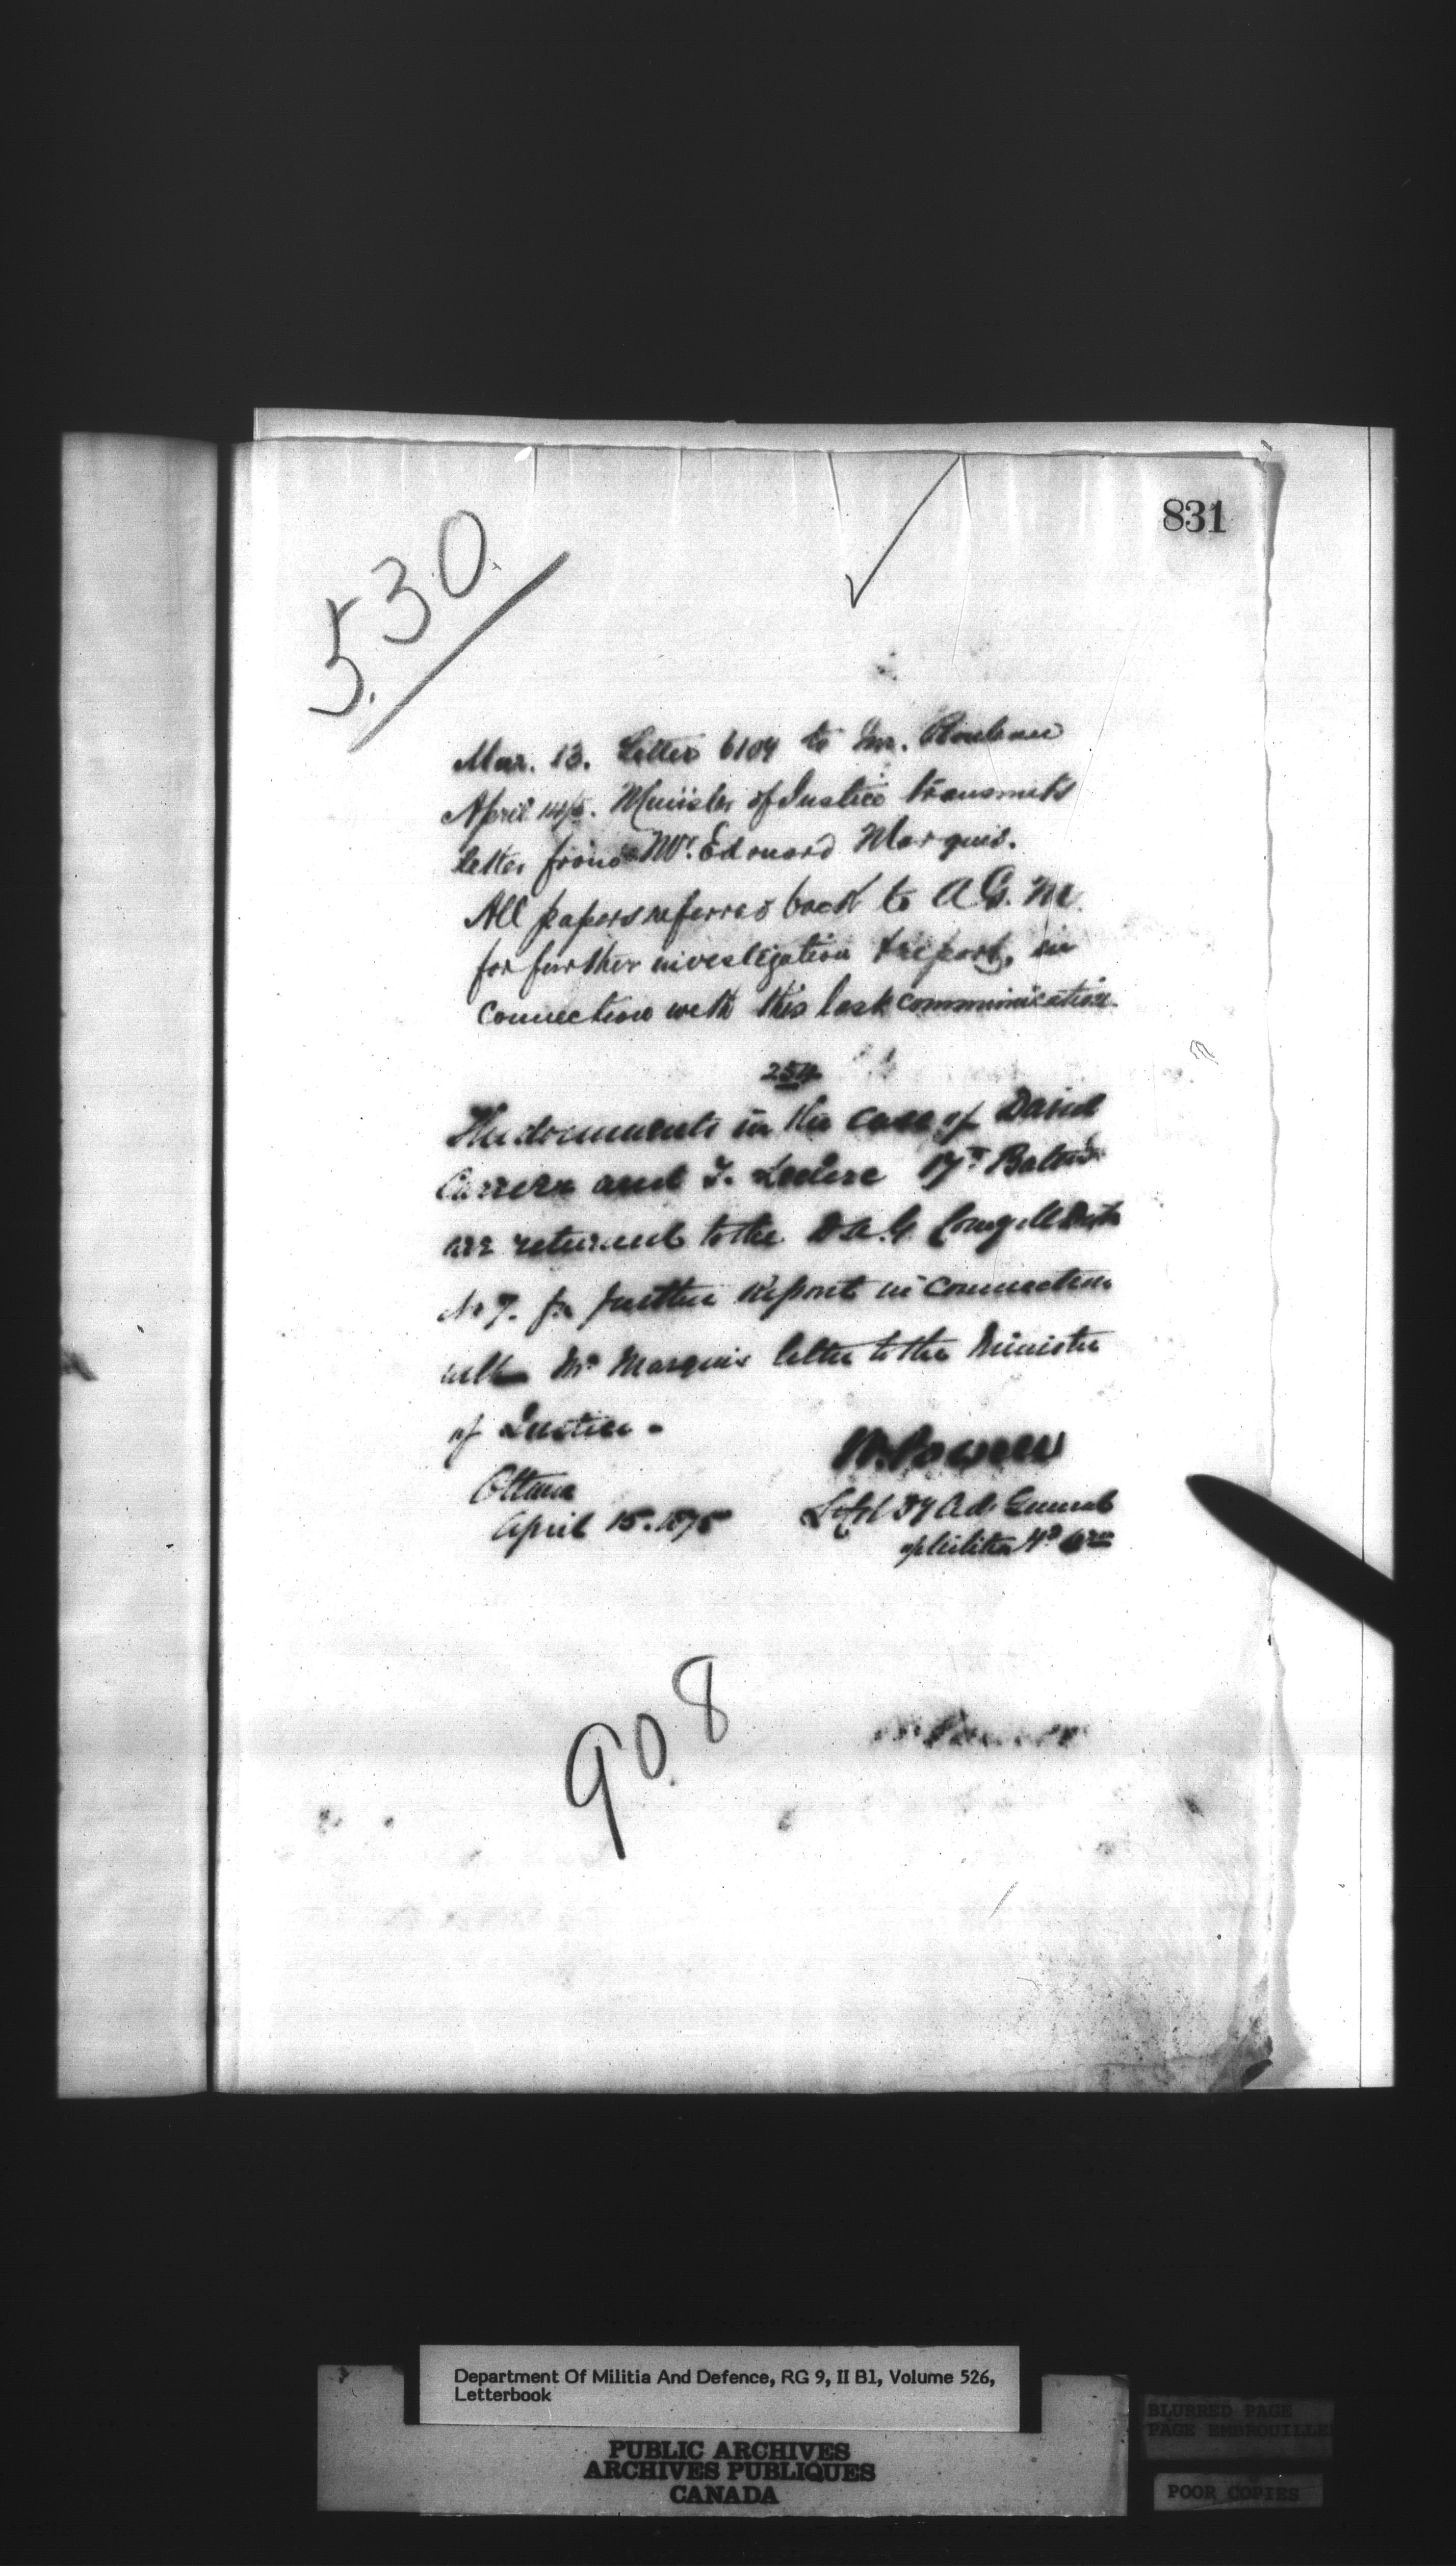 831
530
Mar. 13. Letter 6104 to Mr.
April 14/75. Minister of Justice transmits
letter from Mr. Edouard Marquis.
All papers referred back to A.G.M.
for further investigation & report, in
connection with this last communication.
254
The documents in the case of David
and Leclerc 17th Battn
are returned to the D.A.G. Comg Mil Dist
No 7. for further report in connection
with Mr Marquis letter to the Minister
of Justice.
W. Powell
Ottawa
April 15. 1875
Lt Col Dy Adj General
of Militia Hd Qrs
908
Department Of Militia And Defence, RG 9, II B1, Volume 526,
Letterbook
PUBLIC ARCHIVES
ARCHIVES PUBLIQUES
CANADA
BLURRED PAGE
PAGE EMBROUILLE
POOR COPIES